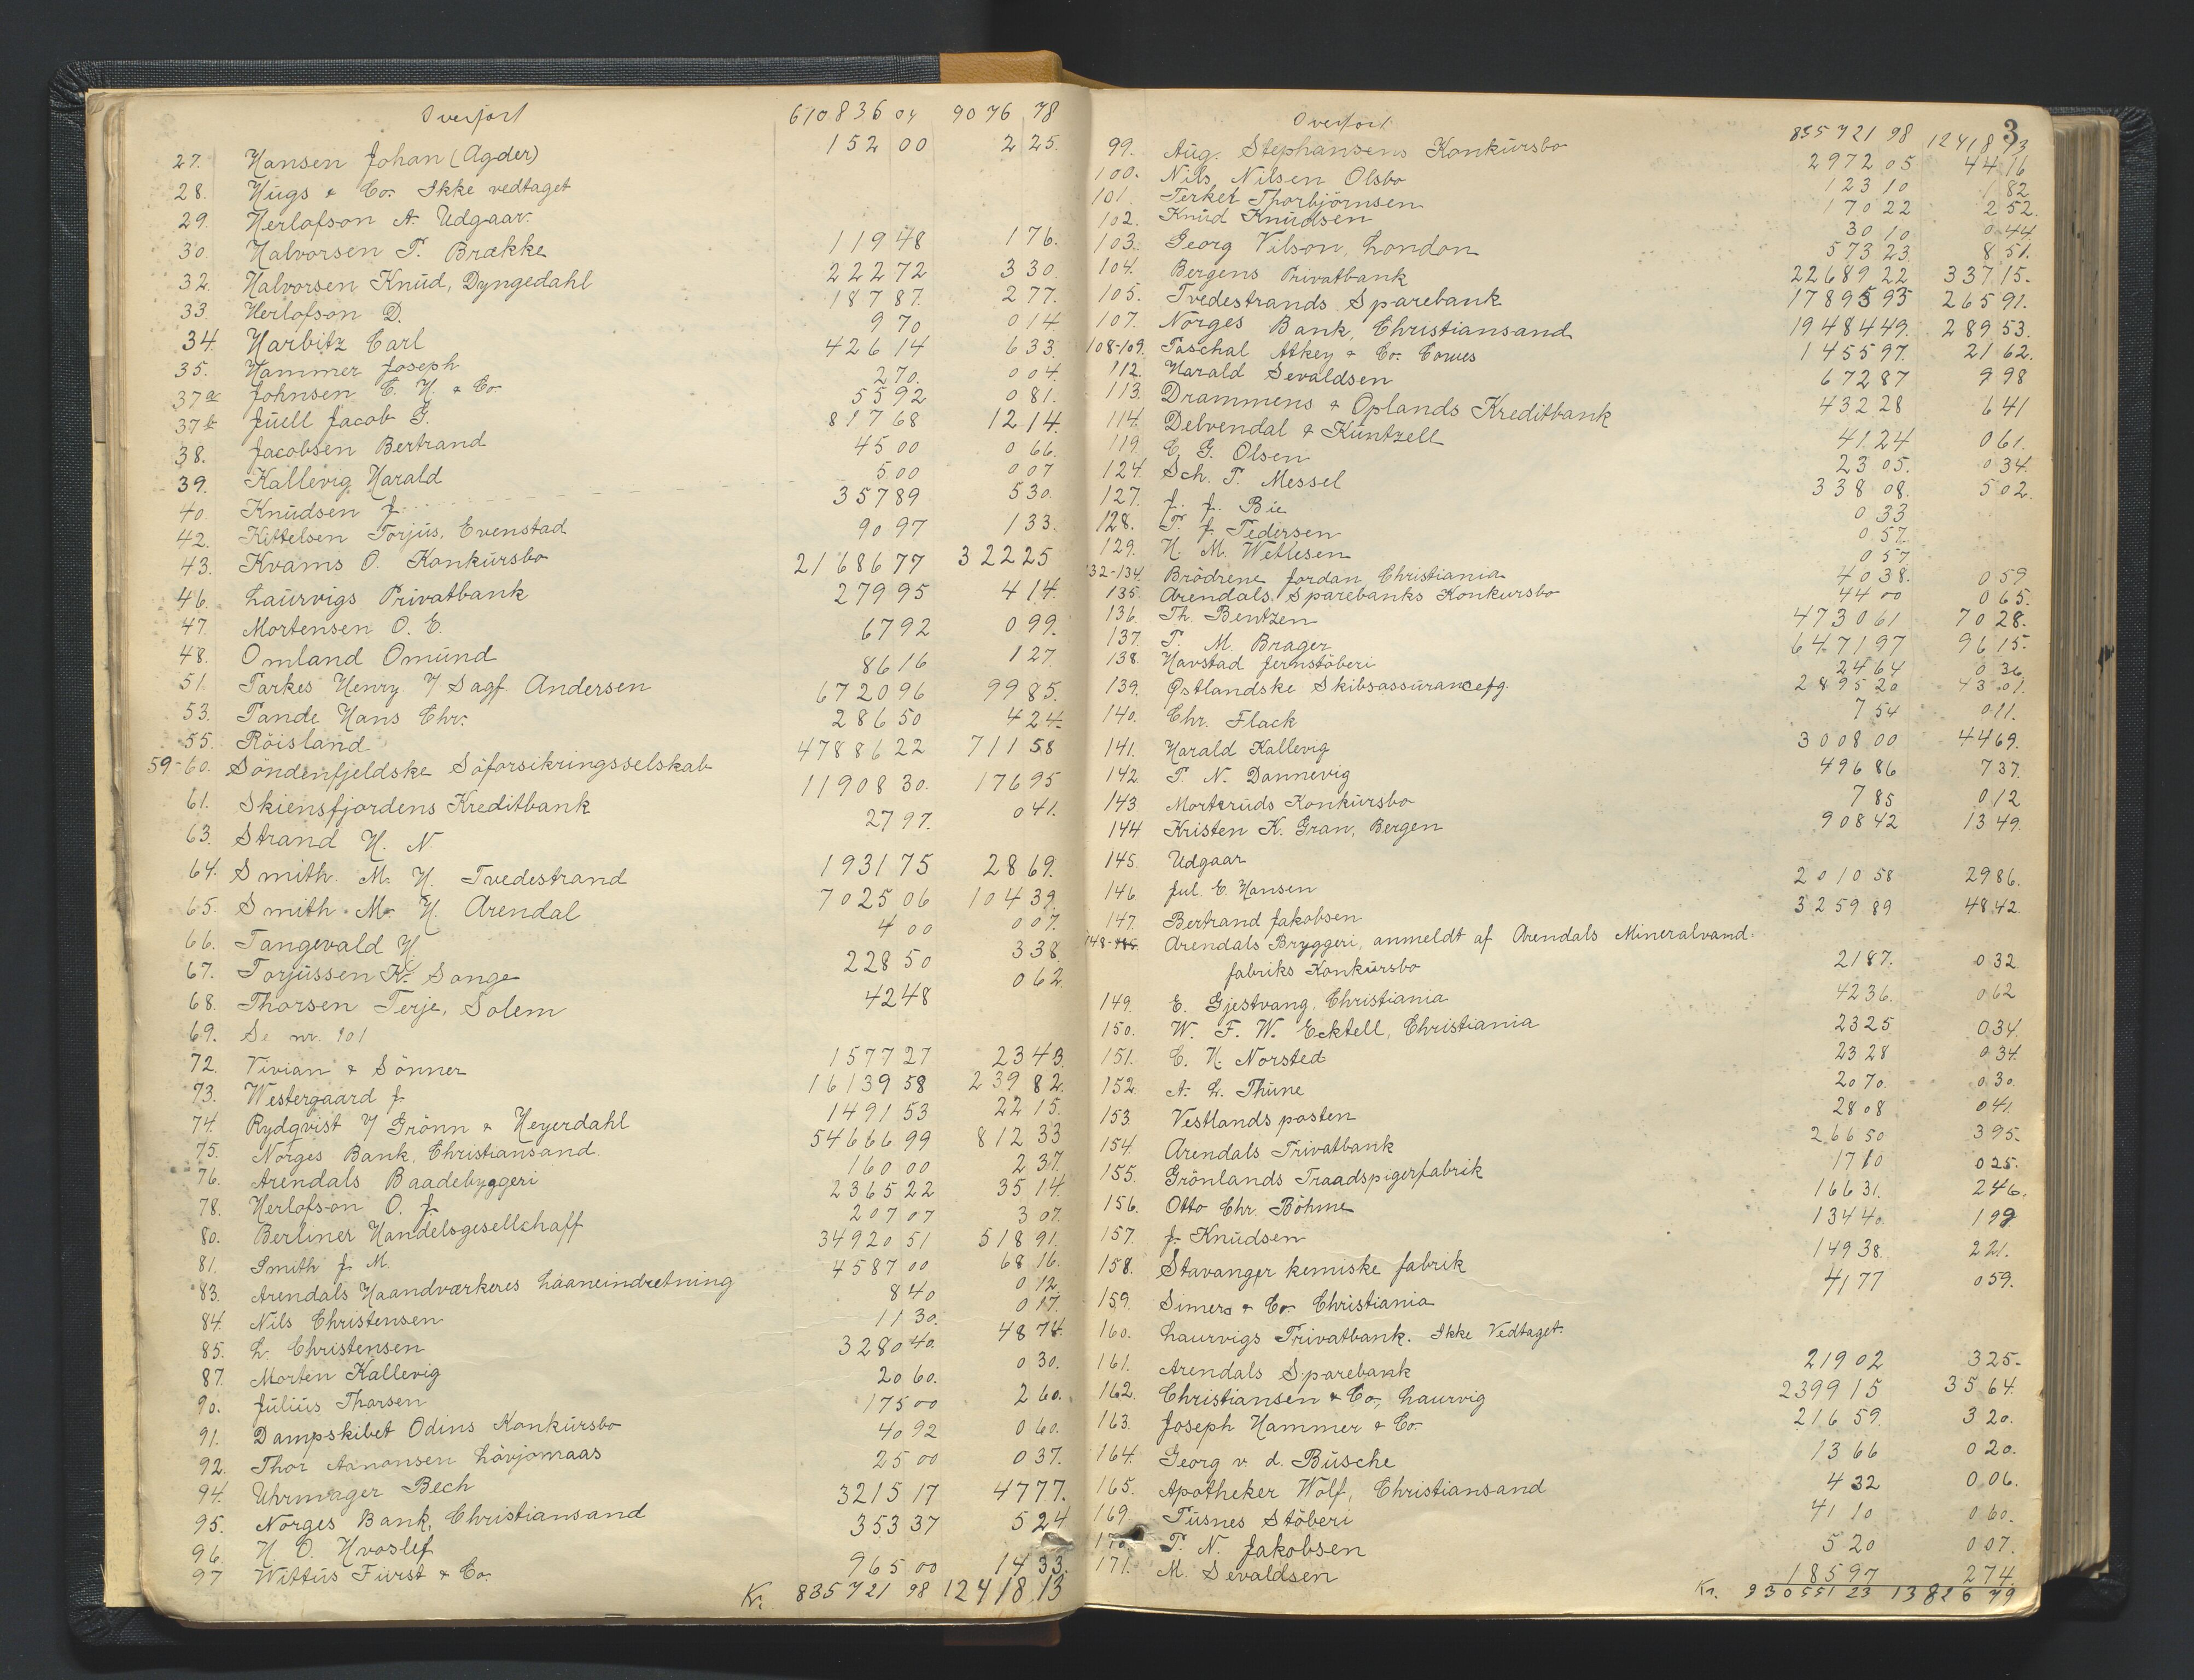 Overført 610836 04 9076 78
27. Hansen Johan (Agder) 152 00 2 25.
28. Hugs & Co. Ikke vedtaget
29. Herlofson A. Udgaar.
30. Halvorsen P. Brække 119 48 1 76.
32. Halvorsen Knud, Dyngedahl 222 72 3 30.
33. Herlofson D. 187 87. 2 77.
34. Harbitz Carl 9 70 0 14
35. Hammer Joseph 426 14 6 33.
37a Johnsen C. H. & Co. 2 70. 0 04.
37b Juell Jacob G. 55 92 0 81.
38. Jacobsen Bertrand 817 68 12 14.
39. Kallevig Harald 45 00 0 66.
40. Knudsen J. 5 00 0 07
42. Kittelsen Torjus, Evenstad 357 89 5 30.
43. Kvams O. Konkursbo 90 97 1 33.
46. Laurvigs Privatbank 21686 77 322 25
47. Mortensen O. E. 279 95 4 14.
48. Omland Omund 67 92 0 99.
51. Parkes Henry. Y Sagf. Andersen 86 16 1 27.
53. Pande Hans Chr. 6720 96 99 85.
55. Röisland 286 50 4 24.
59-60. Söndenfjeldske Söforsikringsselskab 47886 22 711 58
61. Skiensfjordens Kreditbank 11908 30. 176 95
63. Strand H. N 27 97. 0 41.
64. Smith M. H. Tvedestrand 1931 75 28 69.
65. Smith M. H. Arendal 7025 06 104 39.
66. Tangevald H. 4 00 0 07.
67. Torjussen K. Songe 228 50 3 38.
68. Thorsen Terje, Solem 42 48 0 62.
69. Se nr. 101
72. Vivian & Sönner 1577 27 23 43.
73. Westergaard J. 16139 58 239 82.
74. Rydqvist Y Grönn & Heyerdahl 1491 53 22 15.
75. Norges Bank, Christiansand. 54666 99 812 33
76. Arendals Baadebyggeri 160 00 2 37.
78. Herlofson O. J. 2365 22 35 14.
80. Berliner Handelsgesellschaff 207 07 3 07.
81. Smith J. M. 34920 51 518 91.
83. Arendals Haandværkeres Laaneindretning 4587 00 68 16.
84. Nils Christensen 8 40 0 12.
85. L. Christensen 11 30. 0 17.
87. Morten Kallevig 3280 40. 48 74.
90. Julius Thorsen 20 60. 0 30.
91. Dampskibet Odins Konkursbo 175 00 2 60.
92. Thor Aanonsen Lövjomaas 40 92 0 60.
94. Uhrmager Bech 25 00 0 37.
95. Norges Bank, Christiansand 3215 17 47 77.
96. H. O. Hvoslef 353 37 5 24
97 Wittus Fürst & Co. 965 00 14 33.
Kr. 835721 98 12418 13
3
Overført 835721 98 12418 13
99. Aug. Stephansens Konkursbo 2972 05 44 16
100. Nils Nilsen Olsbo 123 10 1 82
101. Terkel Thorbjörnsen 170 22 2 52.
102. Knud Knudsen 30 10 0 44
103. Georg Vilson, London 573 23. 8 51.
104. Bergens Privatbank 22689 22 337 15.
105. Tvedestrands Sparebank 17895 95 265 91.
107. Norges Bank, Christiansand 19484 49. 289 53.
108-109. Paschal Atkey & Co. Cowes 1455 97. 21 62.
112. Harald Sevaldsen 672 87 9 98
113. Drammens & Oplands Kreditbank 432 28 6 41
114. Delvendal & Küntzell 41 24 0 61.
119. C. G. Olsen 23 05. 0 34.
124. Sch. P. Messel 338 08. 5 02.
127. J. J. Bie 0 33
128. P. J. Pedersen 0 57.
129. H. M. Wetlesen 0 57
132-134. Brödrene Jordan, Christiania 40 38. 0 59
135. Arendals Sparebanks Konkursbo 44 00 0 65.
136. Th. Bentzen 4730 61 70 28.
137. P. M. Brager 6471 97 96 15.
138. Havstad Jernstöberi 24 64 0 36
139. Østlandske Skibsassurancefg. 2895 20 43 01.
140. Chr. Flack 7 54 0 11.
141. Harald Kallevig 3008 00 44 69.
142. P. N. Dannevig 496 86 7 37.
143 Mortsruds Konkursbo 7 85 0 12
144 Kristen K. Gran, Bergen 908 42 13 49.
145. Udgaar
146 Jul. E. Hansen 2010 58 29 86.
147. Bertrand Jakobsen 3259 89 48 42.
148- Arendals Bryggeri, anmeldt af Arendals Mineralvand-
fabriks Konkursbo 21 87. 0 32
149. E. Gjestvang, Christiania 42 36. 0 62
150. W. F. W. Ecktell, Christiania 23 25 0 34.
151. C. H. Norsted 23 28 0 34.
152. A. L. Thüne 20 70. 0 30.
153. Vestlandsposten 28 08 0 41.
154. Arendals Privatbank 266 50 3 95.
155. Grönlands Traadspigerfabrik 17 10 0 25.
156. Otto Chr. Böhme 166 31. 2 46.
157. J. Knudsen 134 40. 1 99
158. Stavanger kemiske fabrik 149 38. 2 21.
159. Simers & Co. Christiania 41 77 0 59.
160. Laurvigs Privatbank. Ikke Vedtaget.
161. Arendals Sparebank 219 02 3 25.
162. Christiansen & Co., Laurvig 2399 15 35 64.
163. Joseph Hammer & Co. 216 59. 3 20.
164. Georg v. d. Busche 13 66 0 20.
165. Apotheker Wolf, Christiansand 4 32 0 06.
169. Tusnes Stöberi 41 10 0 60.
170. P. N. Jakobsen 5 20 0 07.
171. M. Sevaldsen 185 97 2 74
Kr. 930551 23 13826 79